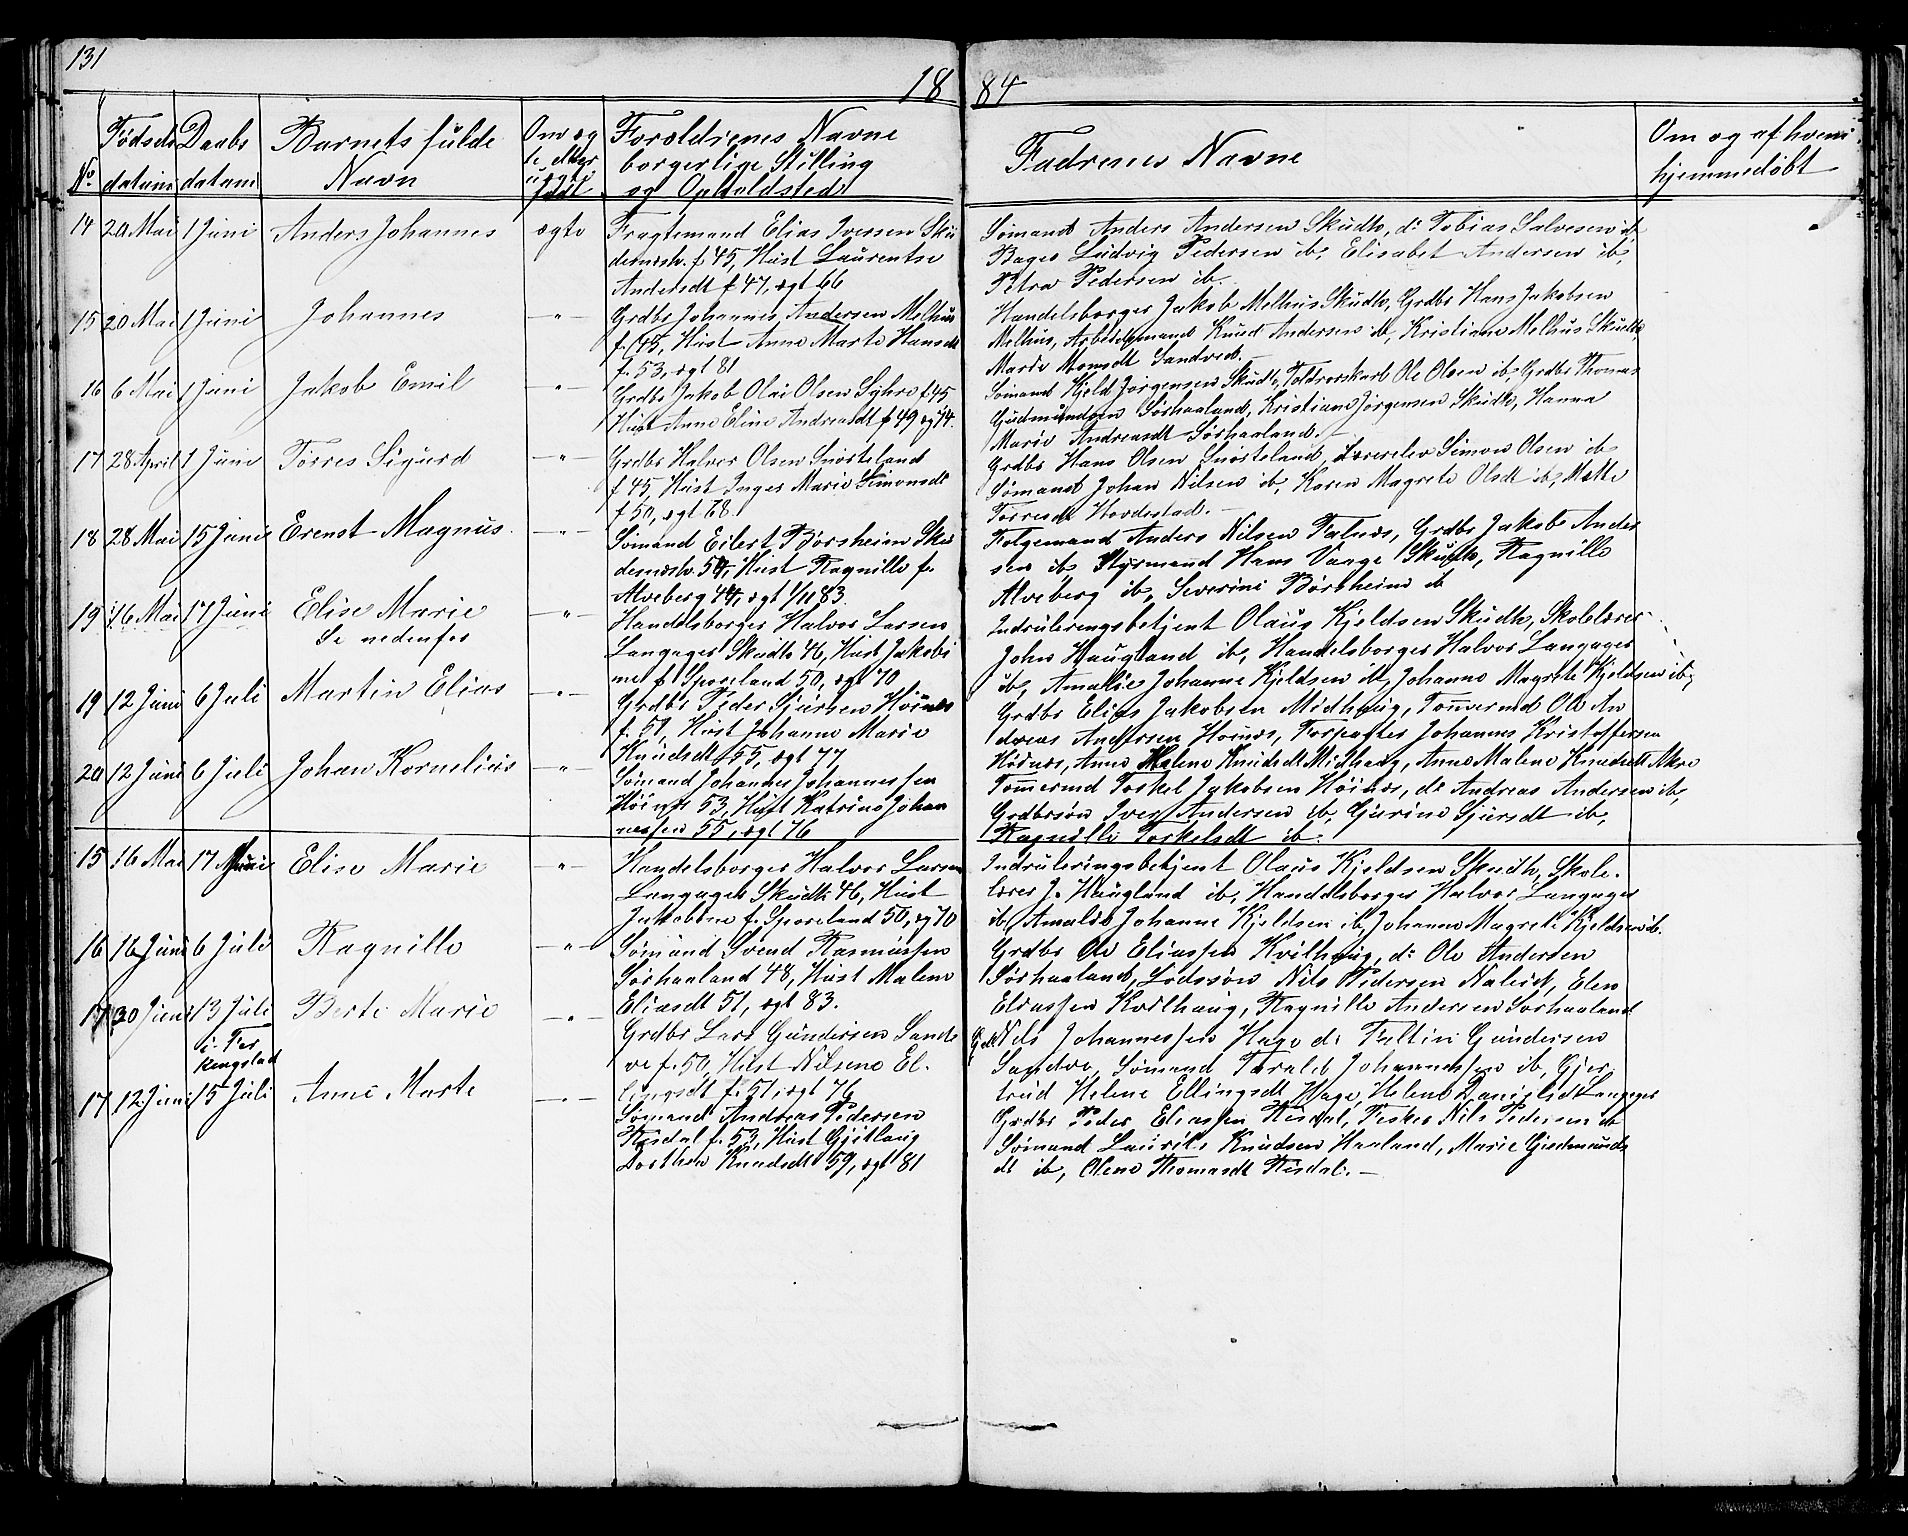 131
18 84
No
Fødsels datum
Daabs datum
Barnets fulde
Navn
Om ægte eller uægte født
Forældrenes Navne
borgerlige Stilling
og Opholdsted
Faddrenes Navne
Om og af hvem
hjemmedøbt
14 20 Mai 1 Juni Anders Johannes ægte
Fragtemand Elias Iversen Sku
desnesh. f 45, Hust Laurentse
Andersdt f 47, ægt 66
Sømand Anders Andersen Skudh, do Tobias Salvesen ib
Bager Ludvig Pedersen ib, Elisabet Andersen ib,
Petra Pedersen ib.
15 20 Mai 1 Juni Johannes -"-
Grdbr Johannes Andersen Melhus
f. 45, Hust Anne Marte Hansdt
f. 53, ægt 81
Handelsborger Jakob Melhus Skudh, Grdbr Hans Jakobsen
Melhus, Arbeidsmand Knud Andersen ib, Kristiane Melhus Skudh,
Marie Monsdt Sandved. -
16 6 Mai 1 Juni Jakob Emil -"-
Grdbr Jakob Olai Olsen Syhre f 45
Hust Anne Eline Andreasdt f 49 ægt 74.
Sømand Kjeld Jørgensen Skudh, Toldroerskarl Ole Olsen ib, Grdbr Thomas
Gudmundsen Sørhaaland, Kristiane Jørgensen Skudh, Hanna
Marie Andreasdt Sørhaaland. -
17 28 April 1 Juni Torres Sigurd -"-
Grdbr Halvor Olsen Snørteland
f 45, Hust Inger Marie Simonsdt
f 50, ægt 78
Grdbr Hans Olsen Snørteland, Lærerelev Simon Olsen ib
Sømand Johan Nilsen ib, Karen Magrete Olsdt ib, Mette
Torresdt Hovdestad. -
18 28 Mai 15 Juni Erenst Magnus. -"-
Sømand Eilert Børsheim Sku
desnesh. 54, Hust Ragnille f.
Alveberg 44, ægt 1/11 83.
Følgemand Anders Nilsen Falnæs, Grdbr Jakob Ander
sen ib Styrmand Hans Vaage Skudh, Ragnille
Alveberg ib, Severine Børsheim ib
19 16 Mai 17 Juni Elise Marie -"-
Se nedenfor
Handelsborger Halvor Larsen
Langager Skudh 46, Hust Jakobi
ne f. Sporeland 50, ægt 70
Indruleringsbetjent Olaus Kjeldsen Skudh, Skolelærer
John Haugland ib, Handelsborger Halvor Langager
ib, Amalie Johanne Kjeldsen ib, Johanne Magrete Kjeldsen ib,
19 12 Juni 6 Juli Martin Elias -"-
Grdbr Peder Sjursen Høinæs
f. 51, Hust Johanne Marie
Knudsdt 55, ægt 77
Grdbr Elias Jakobsen Midhaug, Tømermd Ole An
dreas Andersen Høinæs, Forpagter Johannes Kristoffersen
Høinæs, Anne Malene Knudsdt Midhaug, Anne Malene Knudsdt Akre
20 12 Juni 6 Juli Johan Kornelius -"-
Sømand Johannes Johannessen
Høinæs 53, Hust Katrine Johan
nessen 55, ægt 76
Tømermd Torkel Jakobsen Høinæs, do Andreas Andersen ib,
Grdbrsøn Iver Andersen ib, Gjurine Sjursdt ib,
Ragnille Torkelsdt ib.
15 16 Mai 17 Juni Elise Marie -"-
Handelsborger Halvor Larsen
Langager Skudh 46, Hust
Jakobine f. Sporeland 50, æg 70
Indruleringsbetjent Olaus Kjeldsen Skudh, Skole-
lærer J. Haugland ib, Handelsborger Halvor Langager
ib, Amalie Johanne Kjeldsen ib, Johanne Magrete Kjeldsen ib.
16 16 Juni 6 Juli Ragnille -"-
Sømand Svend Rasmussen
Sørhaaland 48, Hust Malene
Eliasdt 51, ægt 83.
Grdbr Ole Eliassen Kvilhaug, do Ole Andersen
Sørhaaland, Lodssøn Nils Pedersen Naleid, Elen
Eliassen Kvilhaug, Ragnille Andersen Sørhaaland
17 30 Juni 13 Juli Berte Marie -"-
i Fer
kingstad
Grdbr Lars Gundersen Sand
ve f. 50, Hust Nilsene El-
lingsdt f. 51, ægt 76
Nils Johannessen Hage do Faltin Gundersen
Sandve, Sømand Tarald Johannessen ib, Gjer
trud Helene Ellingsdt Hage, Helene Danielsdt Langager
17 12 Juni 15 Juli Anne Marte -"-
Sømand Andreas Pedersen
Risdal f. 53, Hust Gjitlaug
Dorthea Knudsdt 59, ægt 81
Grdbr Peder Eliassen Risdal, Fisker Nils Pedersen ib
Sømand Laurits Knudsen Haaland, Marie Gudmunds
dt ib, Olene Thomasdt Risdal. -